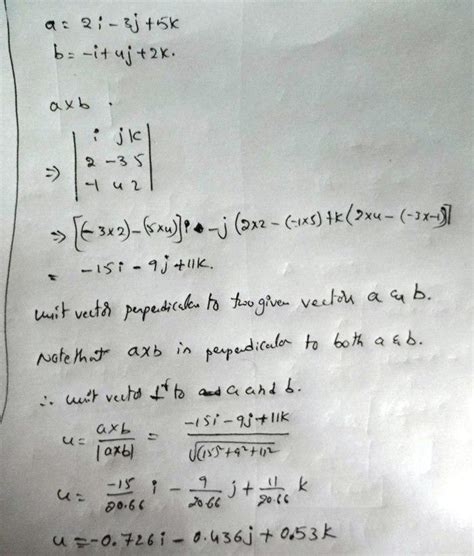 a = 2i - 3j + 5k
b = -i + 4j + 2k.
a x b .
| i j k |
⇒ | 2 -3 5 |
| -1 4 2 |
⇒ [(-3x2) - (5x4)]i - j (2x2 - (-1x5) + k (2x4 - (-3x-1)]
= -15i - 9j + 11k.
unit vector perpendicular to two given vectors a & b.
Note that axb is perpendicular to both a & b.
∴ unit vector ⊥r to a and b.
u = axb / |axb| = -15i - 9j + 11k / √(155 + 9² + 11²
u = -15/20.66 i - 9/20.66 j + 11/20.66 k
u = -0.726i - 0.436j + 0.53k